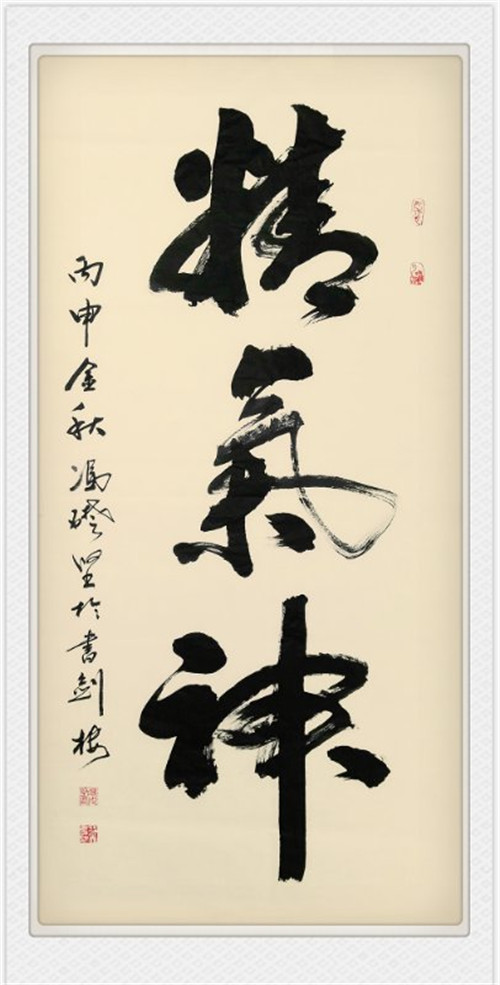 精氣神
丙申金秋馮坚於書劍楼